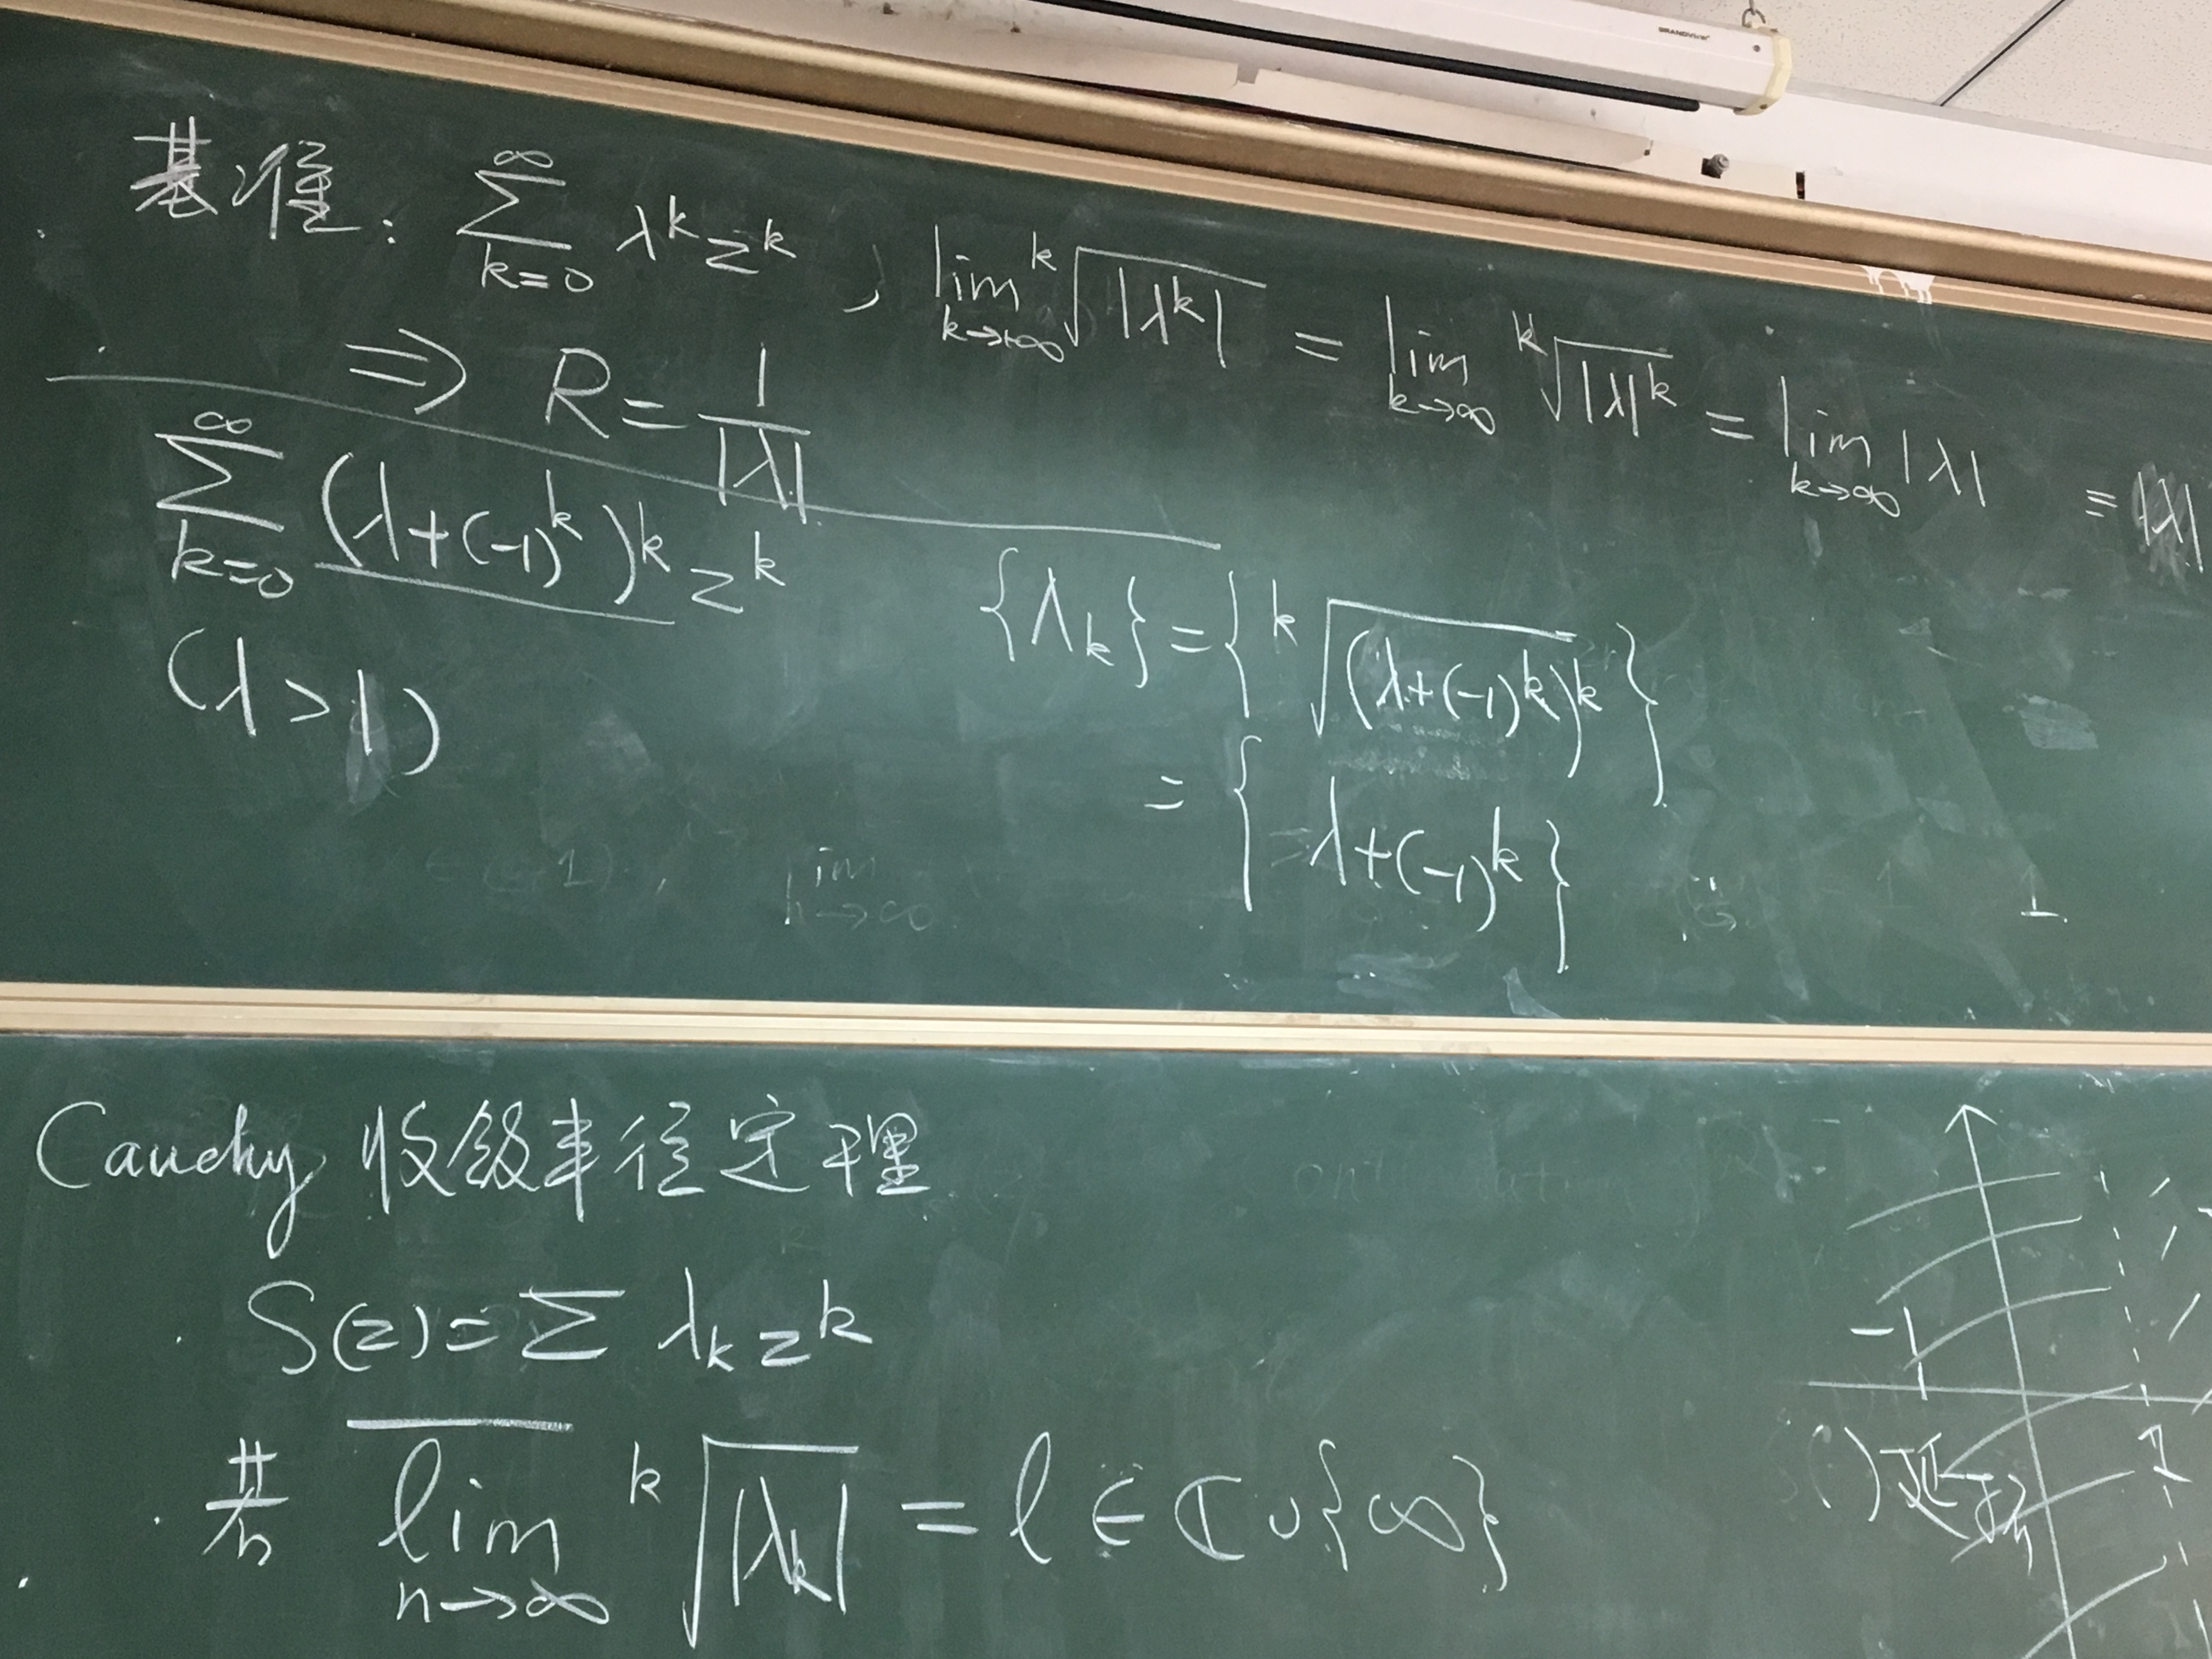 GRANDVIEW
基准: ∑_{k=0}^{∞} λ^k z^k , lim_{k→+∞} ᵏ√|λ^k| = lim_{k→∞} ᵏ√|λ|^k = lim_{k→∞} |λ| = |λ|
⇒ R = 1/|λ|
∑_{k=0}^{∞} (λ+(-1)^k)^k z^k
(λ>1)
{Λ_k} = { ᵏ√(λ+(-1)^k)^k }
= { λ+(-1)^k }
1
Cauchy 收敛半径定理
S(z) = ∑ λ_k z^k
若 \overline{lim}_{n→∞} ᵏ√|λ_k| = l ∈ ℂ∪{∞}
-1
1
S( )延拓